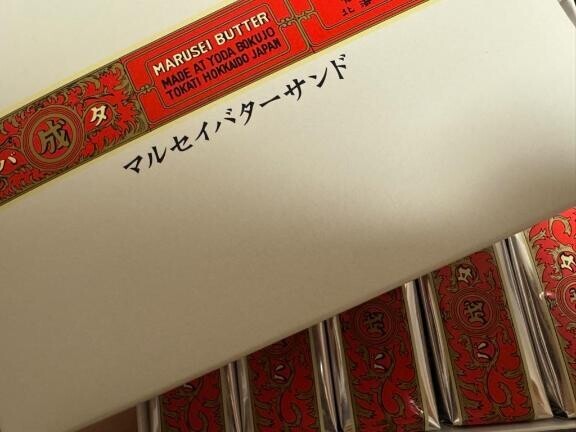 MARUSEI BUTTER
MADE AT YODA BOKUJO
TOKATI HOKKAIDO JAPAN
バ 成 タ
マルセイバターサンド
北海
タ
成
バ
成
バ